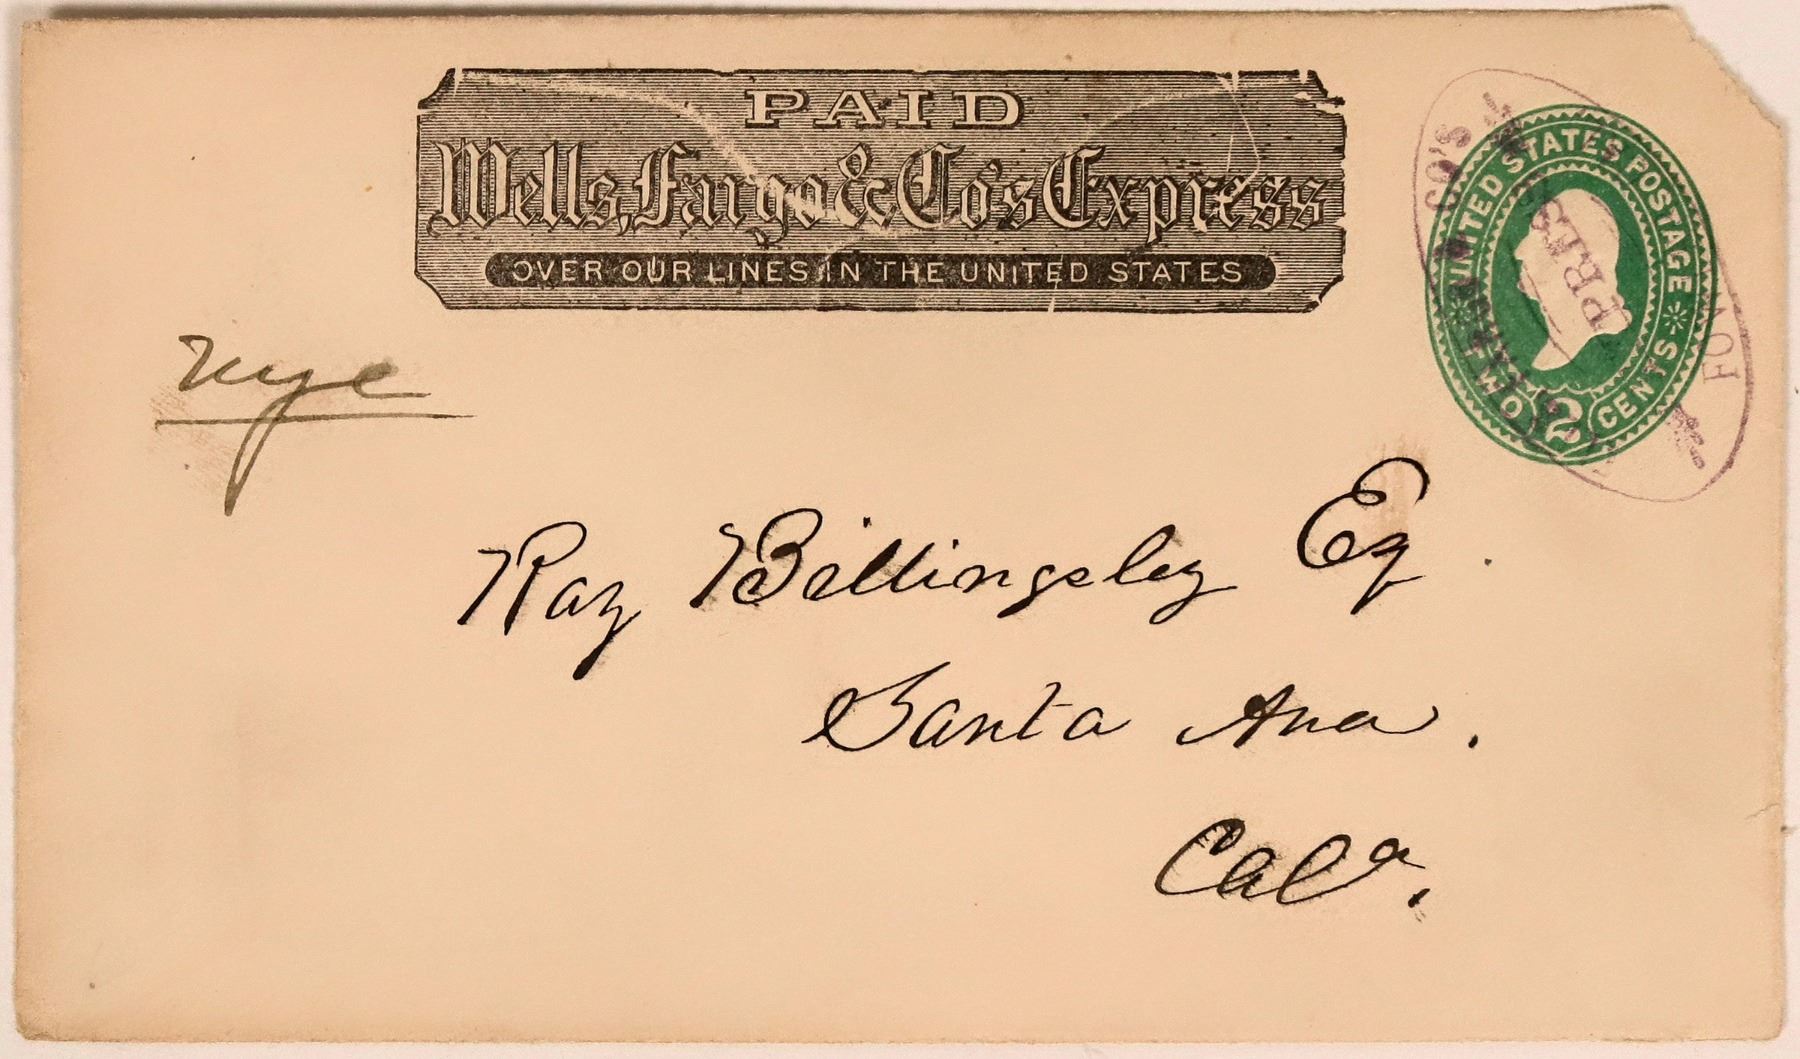 PAID
Wells, Fargo & Co's Express
OVER OUR LINES IN THE UNITED STATES
UNITED STATES POSTAGE
TWO 2 CENTS
CO'S
PRES
Nye
Ray Billingsley Eq.
Santa Ana.
Cala.